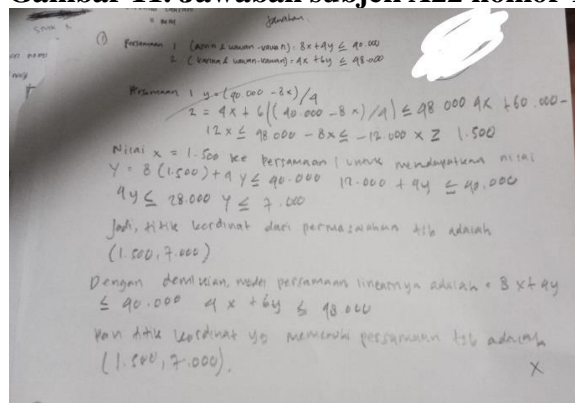 Gambar 11. Jawaban subjek A22 nomor
Jawaban.
SMK
① Persamaan 1 (Asnia & kawan-kawan) : 8x + 4y ≤ 40.000
2 (karina & kawan-kawan) = 4x + 6y ≤ 48.000
Persamaan 1 y = (40.000 - 8x)/4
2 = 4x + 6((40.000 - 8x)/4) ≤ 48 000 4x + 60.000 -
12x ≤ 48 000 - 8x ≤ -12.000 x ≥ 1.500
Nilai x = 1.500 ke persamaan 1 untuk mendapatkan nilai
Y = 8 (1.500) + 4 y ≤ 40.000 12.000 + 4y ≤ 40.000
4y ≤ 28.000 y ≤ 7.000
Jadi, titik kordinat dari permasalahan tsb adalah
(1.500, 7.000)
Dengan demikian, model persamaan linearnya adalah = 8x + 4y
≤ 40.000 4x + 6y ≤ 48.000
Dan titik kordinat yg memenuhi persamaan tsb adalah
(1.500, 7.000).
X